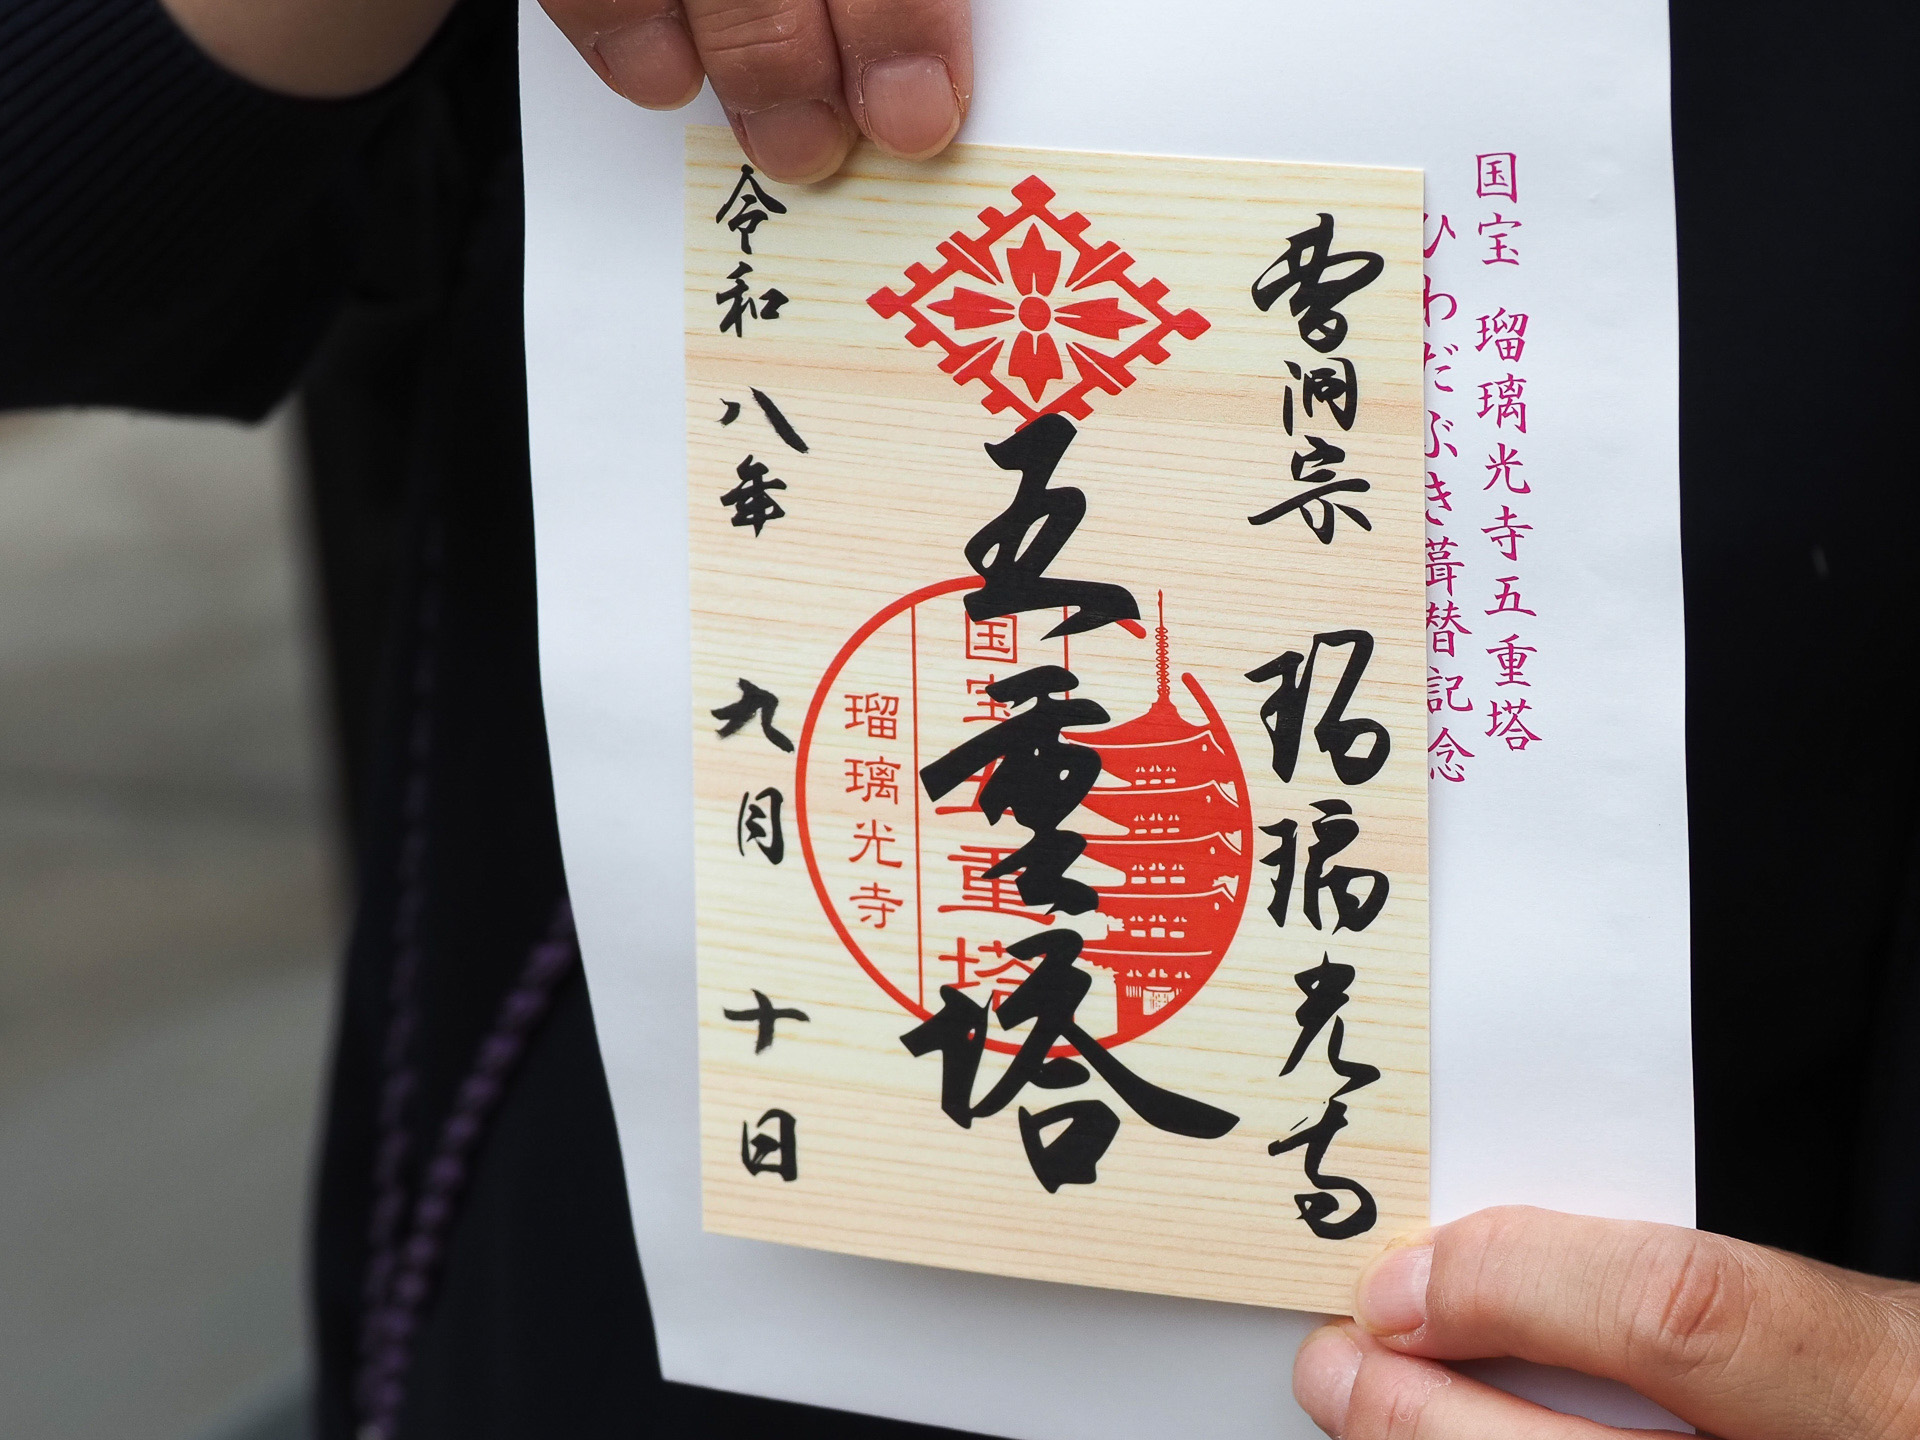 国宝 瑠璃光寺五重塔
ひわだぶき葺替記念
曹洞宗 瑠璃光寺
五重塔
国宝五重塔
瑠璃光寺
令和八年九月十日